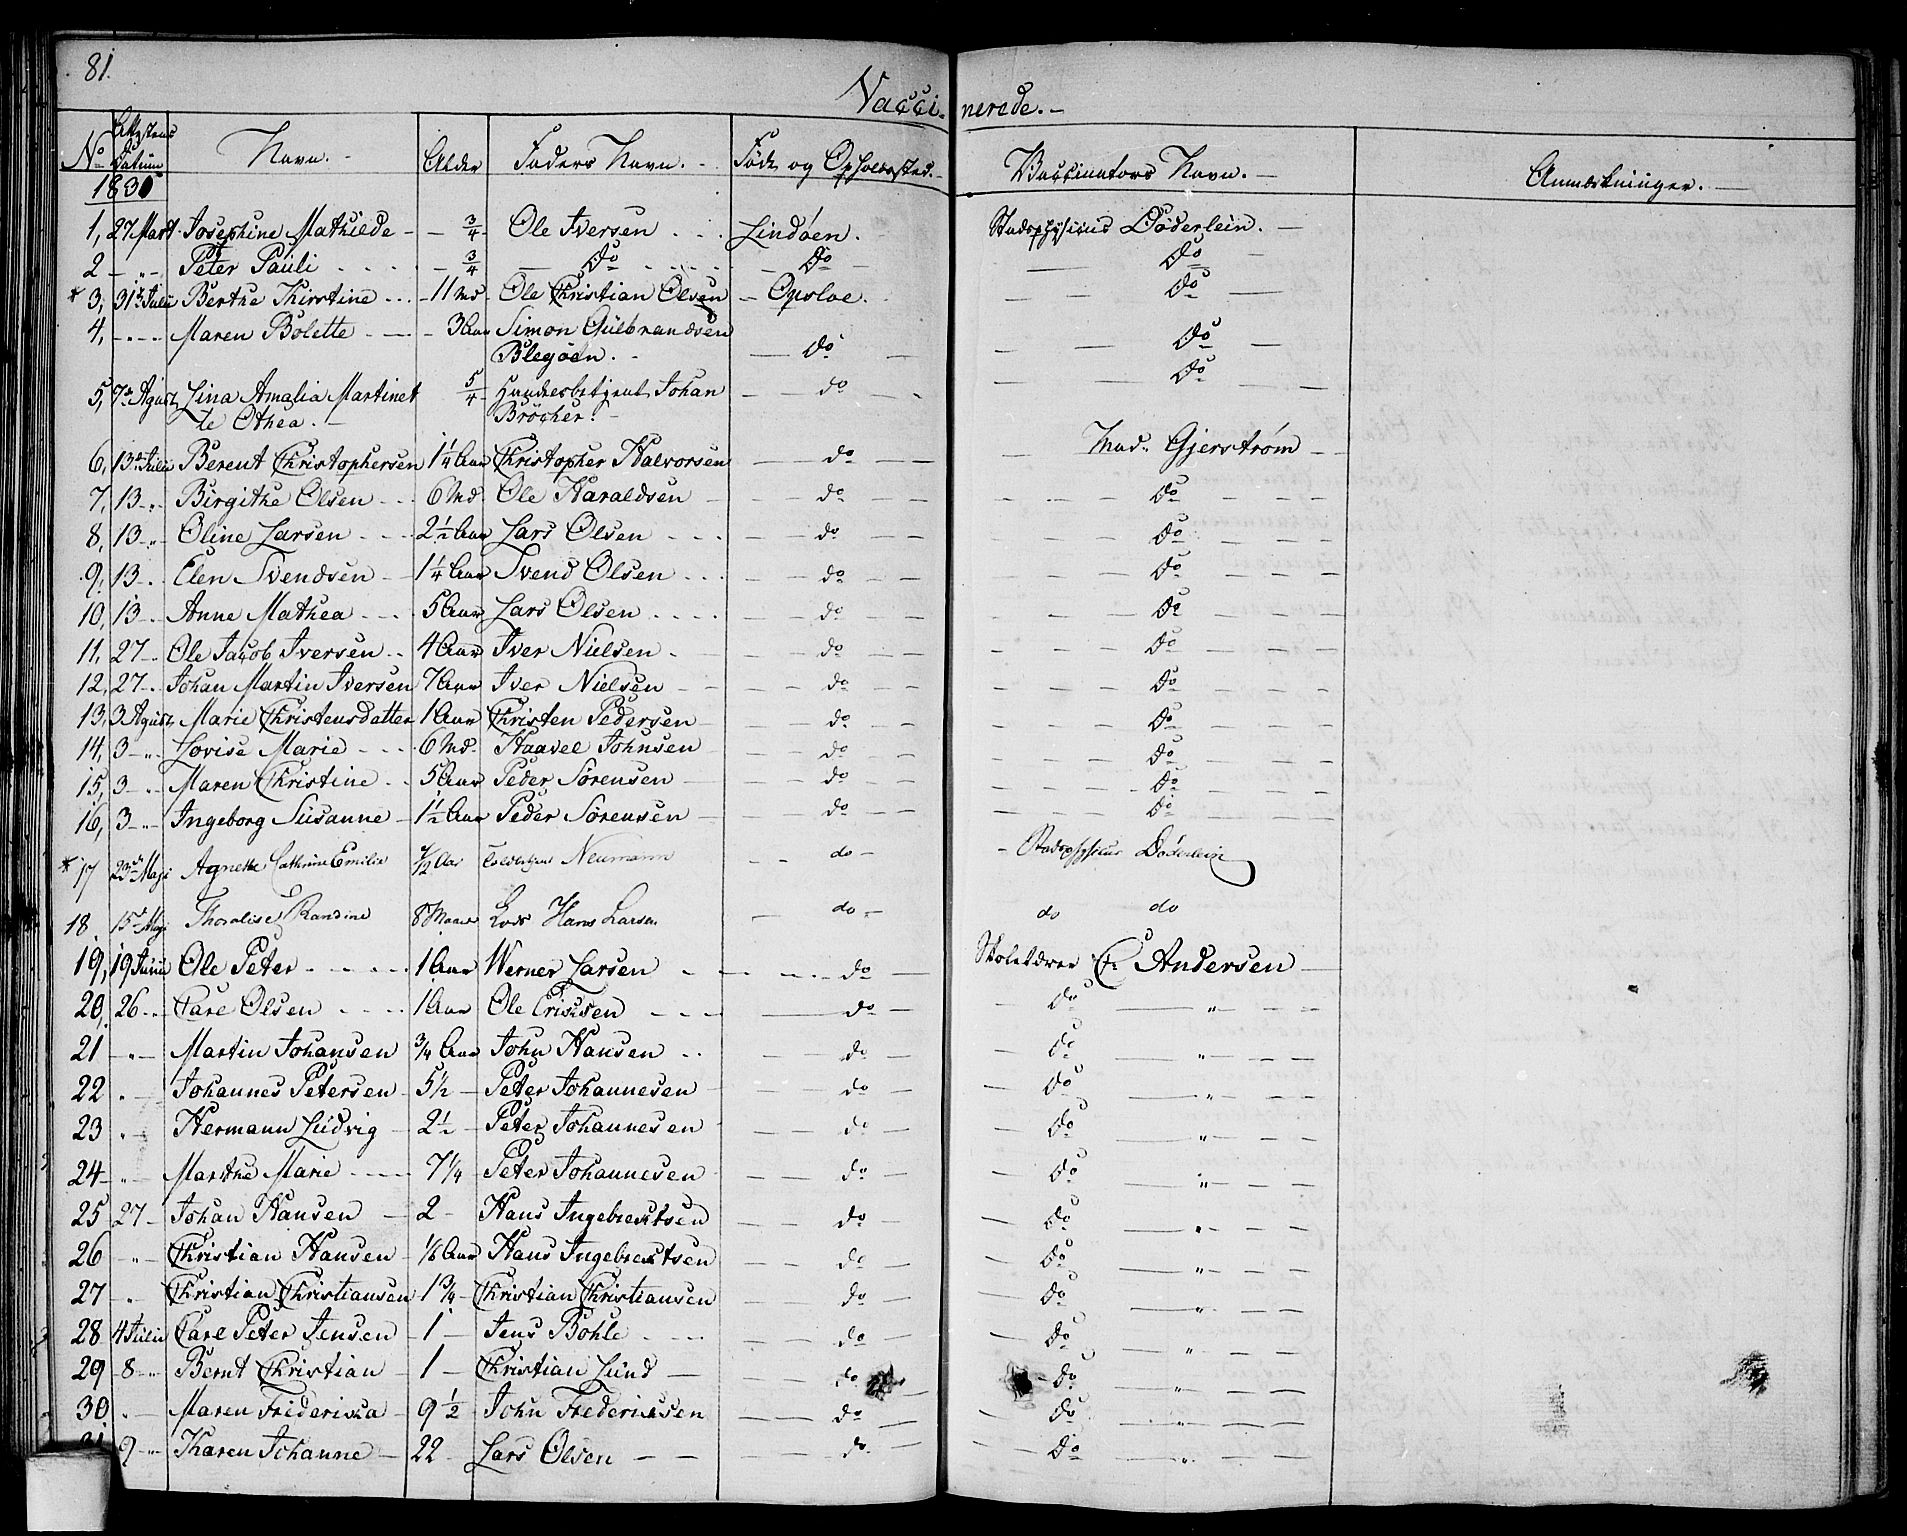 81.
Vacci- nerede. -
No Attestens Datum Navn. - Alder Faders Navn. - Føde og Opholdssted. - Vaccinators Navn. - Anmærkninger. -
1830
1, 27 Mart Josephine Mathilde - - 3/4 - Ole Iversen - - Lindøen. Stadsphysicus Døderlein. -
2 - „ - Peter Pauli - - - - 3/4 - Do - - - - Do - - Do -
* 3, 31te Julii Berthe Kirstine - - - 11 Md - Ole Christian Olsen - Opsloe. - - Do -
4, - - - Maren Bolette - - - 3 Aar Simon Gulbrandsen
Blegøen. - - Do - - - Do -
5, 7de Agust, Lina Amalia Martinet 5/4 Handelsbetjent Johan - - do - - - - Do - -
te Othea. - Brøcher. -
6, 13de Julii Berent Christophersen 1 1/4 Aar Christopher Halvorsen - do - - - Mad. Gjerstrøm - -
7, 13 - „ Birgithe Olsen - - - 6 Md. Ole Haraldsen - - do - - - - Do - - -
8, 13 - „ Oline Larsen - - - 2 1/2 Aar Lars Olsen - - - - do - - - - Do - - -
9, 13 - . Elen Svendsen - - 1 1/4 Aar Svend Olsen - - - - do - - - - Do - - -
10, 13 - . Anne Mathea - - - 5 Aar Lars Olsen - - - - do - - - - Do - - -
11, 27 - . Ole Jacob Iversen - - 4 Aar Iver Nielsen - - - do - - - - Do - - -
12, 27 - . Johan Martin Iversen 7 Aar Iver Nielsen - - - do - - - - Do - - -
13, 3 Agust, Marie Christensdatter 1 Aar Christen Pedersen - - do - - - - Do - - -
14, 3 - „ Lovise Marie - - - 6 Md. Haavel Johnsen - - do - - - - Do - - -
15, 3 - „ Maren Christine - - 5 Aar Peder Sørensen - - do - - - - Do - - -
16, 3 - „ Ingeborg Susanne - 1 1/2 Aar Peder Sørensen - - do - - - - Do - - -
* 17 23de Maji Agnethe Cathrine Emilie 7/12 Aar Neumann - - do - - Stadsphysicus Døderlein
18. 15de Maji Thoralise Randine 8 Maan Lods Hans Larsen - do - do do
19, 19 Junii Ole Peter - - - - 1 Aar Werner Larsen - - - - do - Skolelærer C. Andersen -
20, 26 - „ Carl Olsen - - - - 1 Aar Ole Ericksen - - - - do - - Do - „ - - -
21 - „ - Martin Johansen 3/4 Aar John Hansen - - - do - - Do - „ - - -
22 „ - Johannes Petersen - 5 1/2 - Peter Johannesen - - do - - Do - „ - - -
23 „ Hermann Ludvig - 2 1/2 - Peter Johannesen - - do - - Do - „ - - -
24 - „ - Marthe Marie - - - 7 1/4 Peter Johannesen - - do - - Do - „ - - -
25 27 - Johan Hansen - 2 - Hans Ingebrecktsen - - do - - Do - „ - - -
26 „ - Christian Hansen - 1/8 Aar Hans Ingebrecktsen - - do - - Do - „ - - -
27 „ Christian Christiansen 1 3/4 - Christian Christiansen - - do - - Do - „ - - -
28 4 Julii Carl Peter Jensen - 1 - Jens Bohle - - - - do - - Do - „ - - -
29 - 8 - „ Bernt Christian - 1 - Christian Lund - - do - - Do - „ - - -
30 „ Maren Friderica - 9 1/2 - John Fredericksen - - do - - Do - „ - - -
31 9 - „ Karen Johanne - 22 - Lars Olsen - - - do - - Do - „ - - -